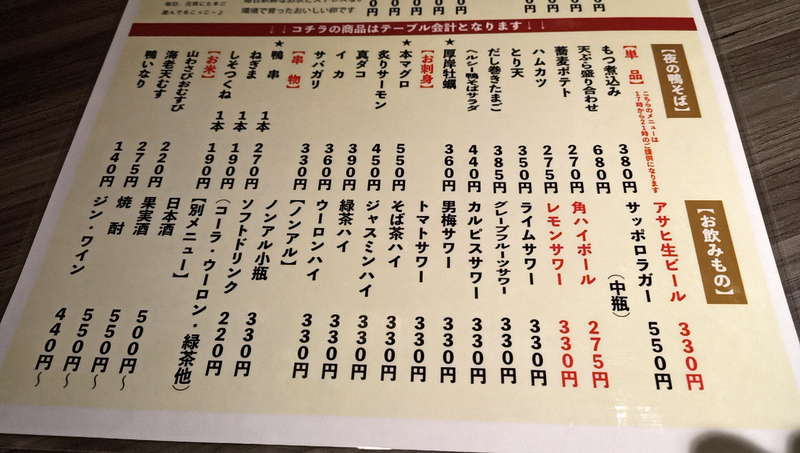 環境で育ったおいしい卵です
↓↓コチラの商品はテーブル会計となります↓↓
【夜の鴨そば】
こちらのメニューは
17時から21時のご提供になります
【単品】
もつ煮込み 380円
天ぷら盛り合わせ 680円
蕎麦ポテト 270円
ハムカツ 275円
とり天 350円
だし巻きたまご 385円
ヘルシー鴨そばサラダ 440円
★厚岸牡蠣 360円
【お刺身】
★本マグロ 550円
炙りサーモン 450円
真ダコ 390円
イカ 360円
サバガリ 330円
【串物】
★鴨串 1本 270円
ねぎま 1本 190円
しそつくね 1本 190円
【お米】
山わさびおむすび 220円
海老天むす 275円
鴨いなり 140円
【お飲みもの】
アサヒ生ビール 330円
サッポロラガー(中瓶) 550円
角ハイボール 275円
レモンサワー 330円
ライムサワー 330円
グレープフルーツサワー 330円
カルピスサワー 330円
男梅サワー 330円
トマトサワー 330円
そば茶ハイ 330円
ジャスミンハイ 330円
緑茶ハイ 330円
ウーロンハイ 330円
【ノンアル】
ノンアル小瓶 330円
ソフトドリンク 220円
(コーラ・ウーロン・緑茶他)
【別メニュー】
日本酒 500円~
果実酒 550円~
焼酎 550円~
ジン・ワイン 440円~